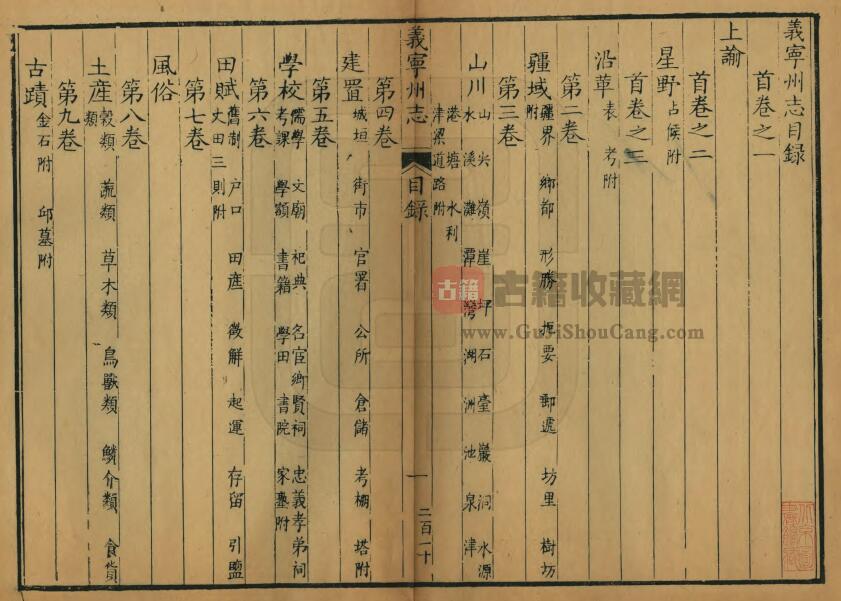 義寧州志目録
首卷之一
上諭
首卷之二
星野 占候附
首卷之三
沿革 表 考附
第二卷
疆域 疆界 鄉都 形勝 扼要 郵遞 坊里 樹坊附
第三卷
山川 山 尖 嶺 崖 坪 石 臺 巖 洞 水源
水 溪 灘 潭 灣 湖 洲 池 泉 津
港 塘 水利
津梁道路附
義寧州志 目録 一 二百一十
第四卷
建置 城垣 街市 官署 公所 倉儲 考棚 塔附
第五卷
學校 儒學 文廟 祀典 名宦鄉賢祠 忠義孝弟祠
考課 學額 書籍 學田 書院 家塾附
第六卷
田賦 舊制 戶口 田產 徵解 起運 存留 引鹽
丈田三則附
第七卷
風俗
第八卷
土産 穀類 蔬類 草木類 鳥獸類 鱗介類 食貨類
第九卷
古蹟 金石附 邱墓附
古籍
古籍收藏網
www.GuJiShouCang.com